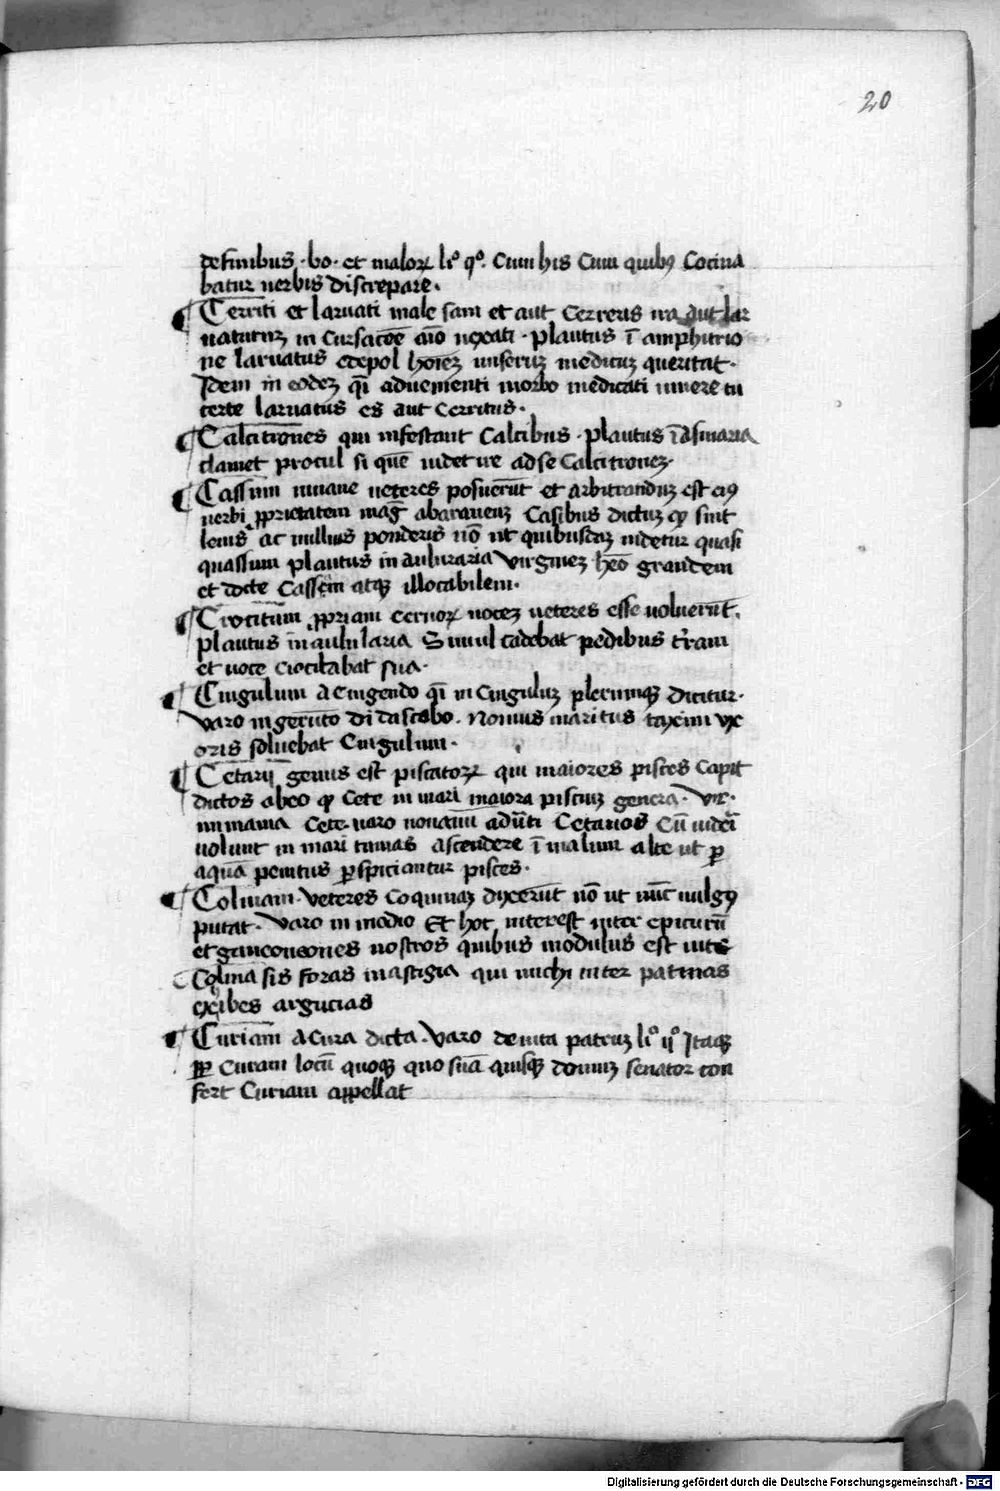 20
definibus · bo · et maloꝝ liº qº. Cum his Cum quibꝰ Cocina
batur uerbis discrepare ·
¶ Cerriti et laruati male sani et aut Cerreris ira aut lar
uatiturꝫ in Cursacōe aīo uexati · plautus ī amphitrio
ne laruatus edepol hoīeꝫ miseruꝫ medicuꝫ queritat ·
Idem in eodeꝫ qī aduementi morbo medicati iunere tu
certe laruatus es aut Cerritus ·
¶ Calcitrones qui infestant Calcibus · plautus ī Asinaria
clamet procul si quē uidet ire ad se Calcitroneꝫ ·
¶ Cassum inane ueteres posuerūt et arbitranduꝫ est eiꝰ
uerbi ꝓprietatem maḡ abaraneis Casibus dictuꝫ ꝙ sint
leuis ac nullius ponderis nō ut quibusdaꝫ uidetur quasi
quassum plautus in aulularia Virgineꝫ hēo grandem
et dote Cassem atqꝫ illocabilem ·
¶ Crocitum ꝓpriam ceruoꝝ uoceꝫ ueteres esse uoluerūt ·
plautus in aulularia Simul cadebat pedibus t̄ram
et uoce crocitabat sua ·
¶ Cingulum a Cingendo qī in Cinguluꝫ plerumqꝫ dicitur ·
Varo in geruto didascabo · nouius maritus taxim ux
oris soluebat Cingulum ·
¶ Cetarij genus est piscatoꝝ qui maiores pisces capit
dictos ab eo ꝙ Cete in mari maiora pisciuꝫ genera · Vir ·
inmania Cete · uaro nonanū adūti Cetarios Cū uideri
uolunt in mari tunnas ascendere ī malum alte ut ꝑ
aquā penitus ꝑspiciantur pisces ·
¶ Colinam · Veteres coquinaꝫ dixerūt nō ut nūc uulgꝰ
putat · Varo in modio Et hoc interest inter epicurū
et ganconeones nostros quibus modulus est uite
Colina sis foras mastigia qui michi inter patinas
exibes argucias
¶ Curiam a Cura dicta · Varo de uita patruꝫ liº ijº Itaqꝫ
ꝓp Curam locū quoqꝫ quo suā quisqꝫ domuꝫ senator con
fert Curiam appellat
Digitalisierung gefördert durch die Deutsche Forschungsgemeinschaft - DFG